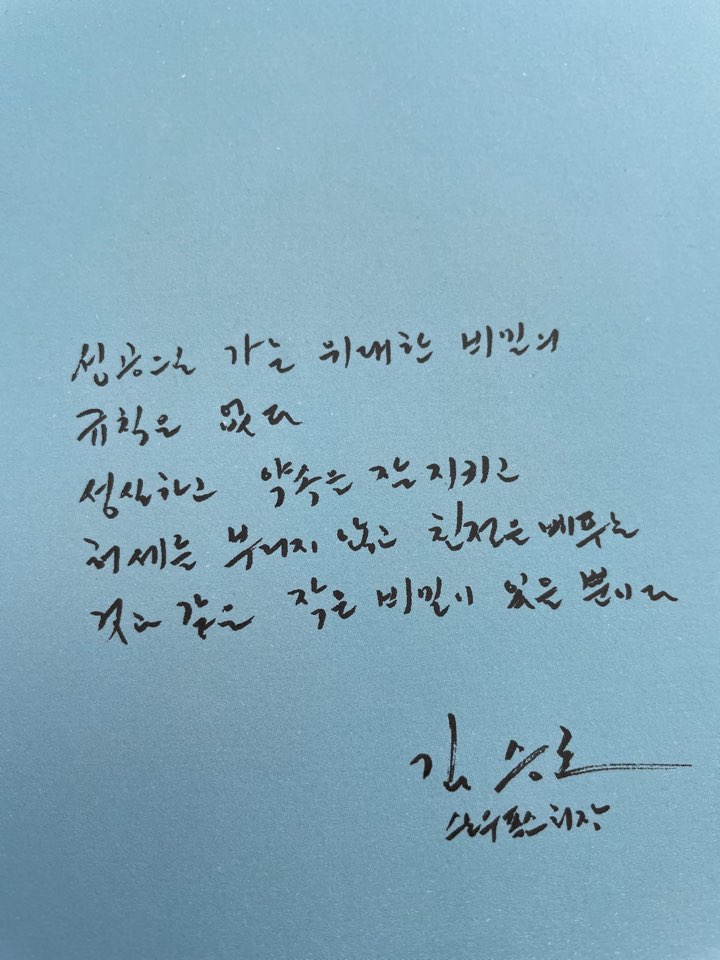 성공으로 가는 위대한 비밀의
규칙은 없다
성실하고 약속을 잘 지키고
허세를 부리지 않고 친절을 베푸는
것과 같은 작은 비밀이 있을 뿐이다
김승호
스노우폭스 회장